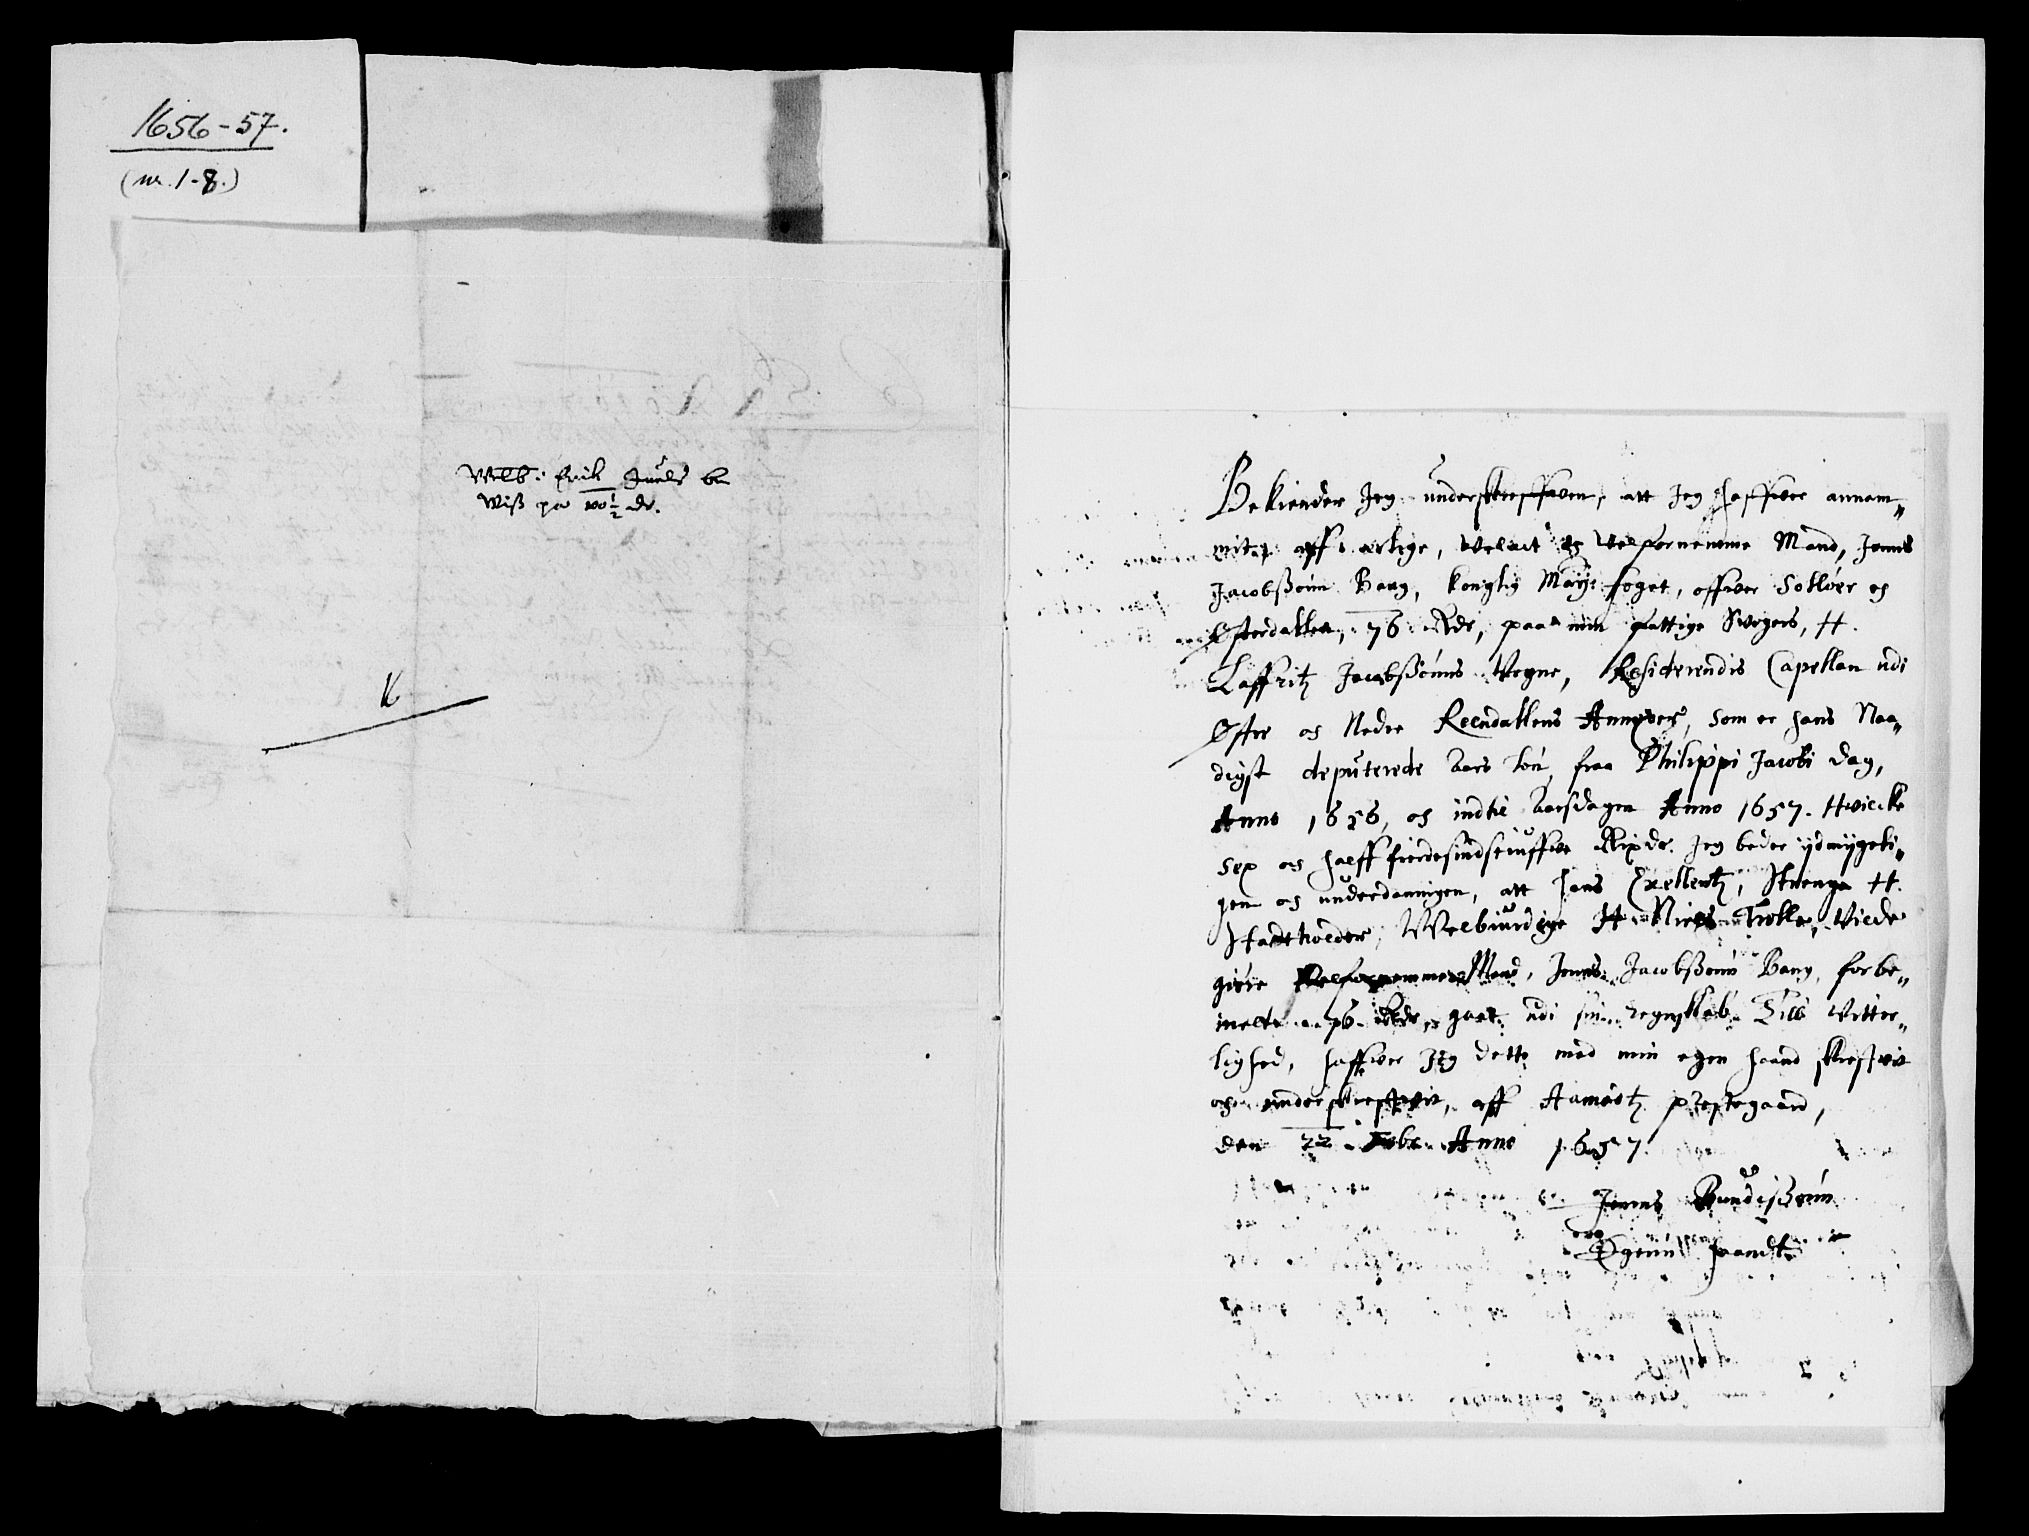 1656-57.
(nr. 1-8.)
Welb: Erik Juels be
wiß på 100 1/2 dr.
16
Bekiender Jeg underskreffven, att Jeg haffver annam„
mitt aff erlige, velact og velfornemme Mand, Jenns
Jacobßønn Bang, konglig Mayt: foget, offver Soløer og
Østerdallen, 76 Rdr, paa min fattige Svogers, H.
Laffritz Jacobßønns Vegne, Residerendis Capellan udi
Øfre og Nedre Reendallens Annexer, som er hans Naa„
digst deputerede Aars løn, fraa Philippi Jacobi dag,
Anno 1656, og indtil Aarsdagen Anno 1657. Hvilcke
sex og halff fierdesindstiuffve Rixdr. Jeg beder ydmygeli„
gen og underdannigen, att hans Excellentz, Strenge H.
Stadtholder, Welbiurdige H. Niels Trolle, Vilde
giøre Velfornemme Mand, Jenns Jacobßønn Bang, forbe„
melte 76 Rdr, gaat udi sin regnskab. Till Vitter„
lighed, haffver Jeg dette med min egen haand skreffvit
og underskreffvit, aff Aamodtz prestegaard,
den 22 Anno 1657.
Jenns Bundißønn
Egenn haandt